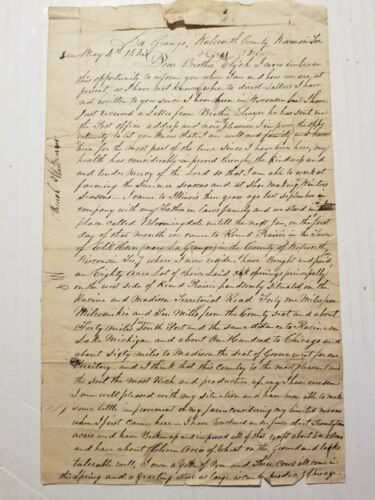 La Grange, Walworth County, Wisconsin Ter
May 4th 184
Dear Brother Elijah I now embrace
this opportunity to inform you where I am and how we are, at
present, as I have not known where to direct Letters I have
not written to you since I have been in Wisconsin but I have
Just received a Letter from Brother he has sent me
the Post office address and more pleasure I improve the oppor
tunity to let you know that I am well and family and have
been for the most part of the time Since I have been here, my
health has considerably improved through the kindness and
and tender mercy of the Lord so that I am able to work at
farming the Summer Seasons and at Shoe Making Winter
Seasons I came to Illinois three years ago last September in
company with my Father in Laws family and we staid in a
place called Bloomingdale untill the next on the first
day of that month we came to Round Prairie in the Town
of now La Grange in the County of Walworth
Wisconsin Ter where I now reside have Bought and
an Eighty Acre Lot of choice Land Oak openings principally
on the west side of Round Prairie pleasantly Situated on the
Racine and Madison Territorial Road Forty one Miles from
Milwaukie and Ten Miles from the County seat and about
Forty Miles South Port and the same distance to Racine on
Lake Michigan and about One Hundred to Chicago and
about Sixty miles to Madison the seat of Government for our
Territory, and I think that this country is the most pleasant and
the Soil the most Rich and productive of any I have ever seen
I am well pleased with my situation and have been able to make
some little improvement on my farm considering my limited means
when I first came here I have Enclosed
acres and have Broke up and improved all of that except about
and have about Eleven acres of Wheat on the Ground and looks
tolerable well, I own a Yoke of Oxen and Three Cows all come in
this Spring and a yearling steer as large as